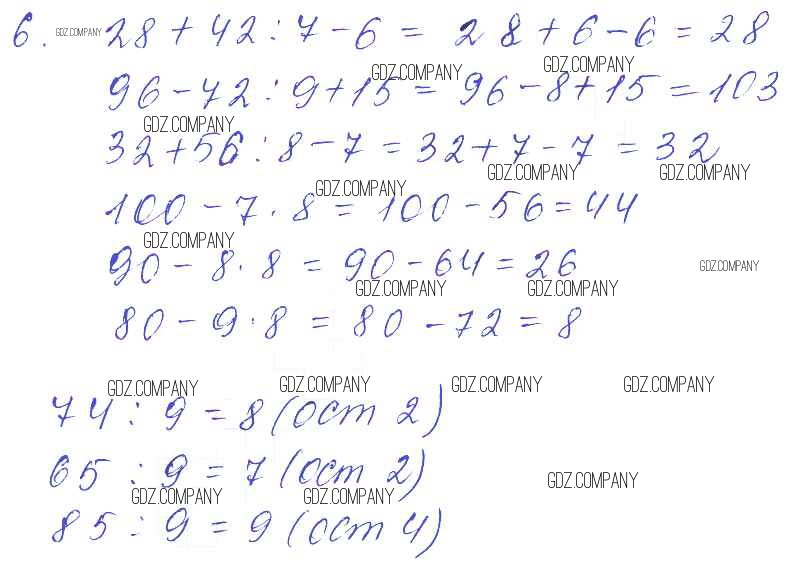 6. GDZ.COMPANY 28 + 42 : 7 - 6 = 28 + 6 - 6 = 28
GDZ.COMPANY GDZ.COMPANY
96 - 72 : 9 + 15 = 96 - 8 + 15 = 103
GDZ.COMPANY
32 + 56 : 8 - 7 = 32 + 7 - 7 = 32
GDZ.COMPANY GDZ.COMPANY GDZ.COMPANY
100 - 7 · 8 = 100 - 56 = 44
GDZ.COMPANY
90 - 8 · 8 = 90 - 64 = 26
GDZ.COMPANY
GDZ.COMPANY GDZ.COMPANY
80 - 9 · 8 = 80 - 72 = 8
GDZ.COMPANY GDZ.COMPANY GDZ.COMPANY GDZ.COMPANY
74 : 9 = 8 (ост 2)
65 : 9 = 7 (ост 2)
GDZ.COMPANY GDZ.COMPANY GDZ.COMPANY
85 : 9 = 9 (ост 4)